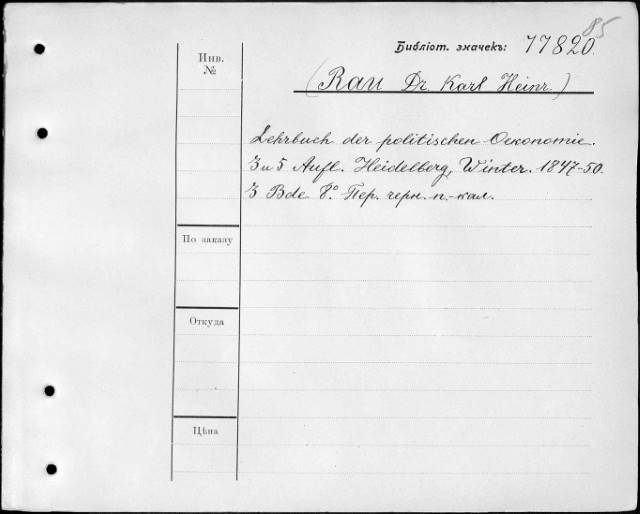 85
Библіот. значекъ: 77820.
Инв.
№
(Rau Dr. Karl Heinr.)
Lehrbuch der politischen Oekonomie.
3 u 5 Aufl. Heidelberg, Winter. 1847-50.
3 Bde 8º. Пер. черн. п.-кал.
По заказу
Откуда
Цѣна